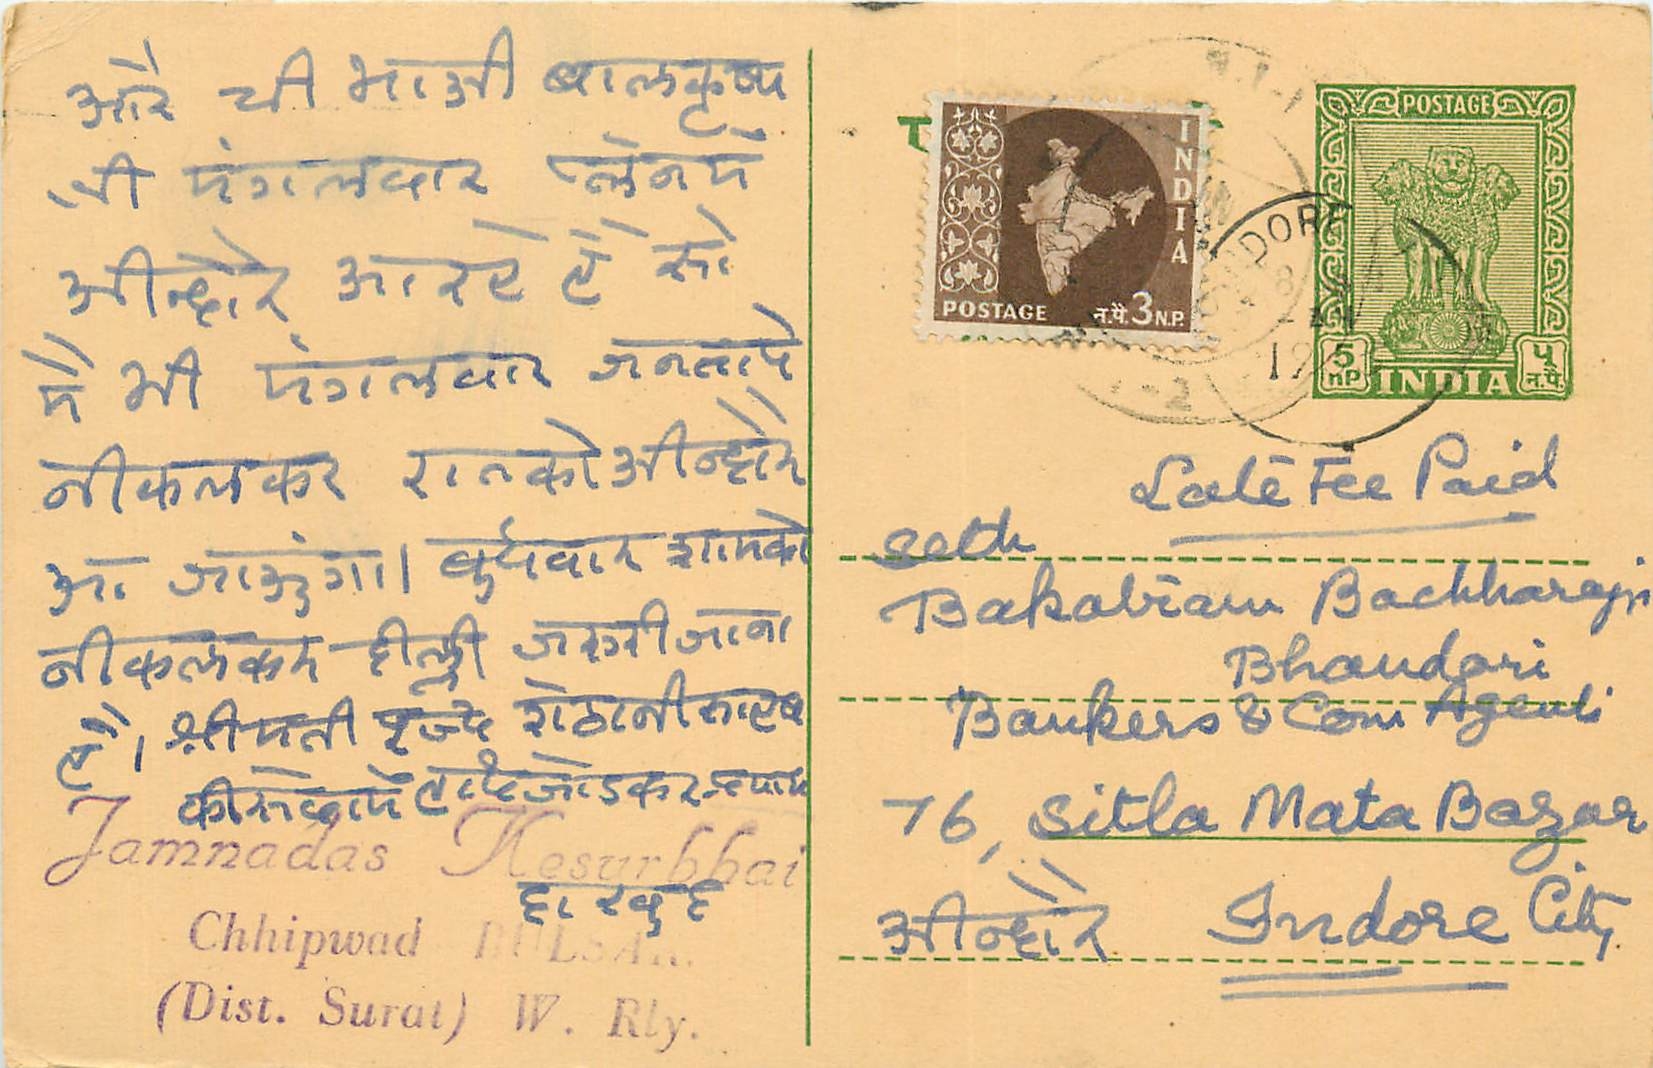 और ची भाअी बालकृष्ण
भी मंगलवार प्लेनमें
अीन्दौर आरहे हैं सो
मैं भी मंगलवार जनतामें
नीकलकर रातको अीन्दौर
आ जाअुंगा। बुधवार शामको
नीकलकर दील्ली जरुरी जाना
है। श्रीमती पूज्य शेठानी साहब
की सेवामें हाथ जोडकर
Jamnadas Kesurbhai
Chhipwad BULSAR.
(Dist. Surat) W. Rly.
INDIA
POSTAGE न.पै. 3 N.P.
INDORE
POSTAGE
5 NP INDIA ५ न.पै.
Late Fee Paid
Seth
Bakabram Bachharajji
Bhandari
Bankers & Com Agents
76, Sitla Mata Bazar
अीन्दौर Indore City